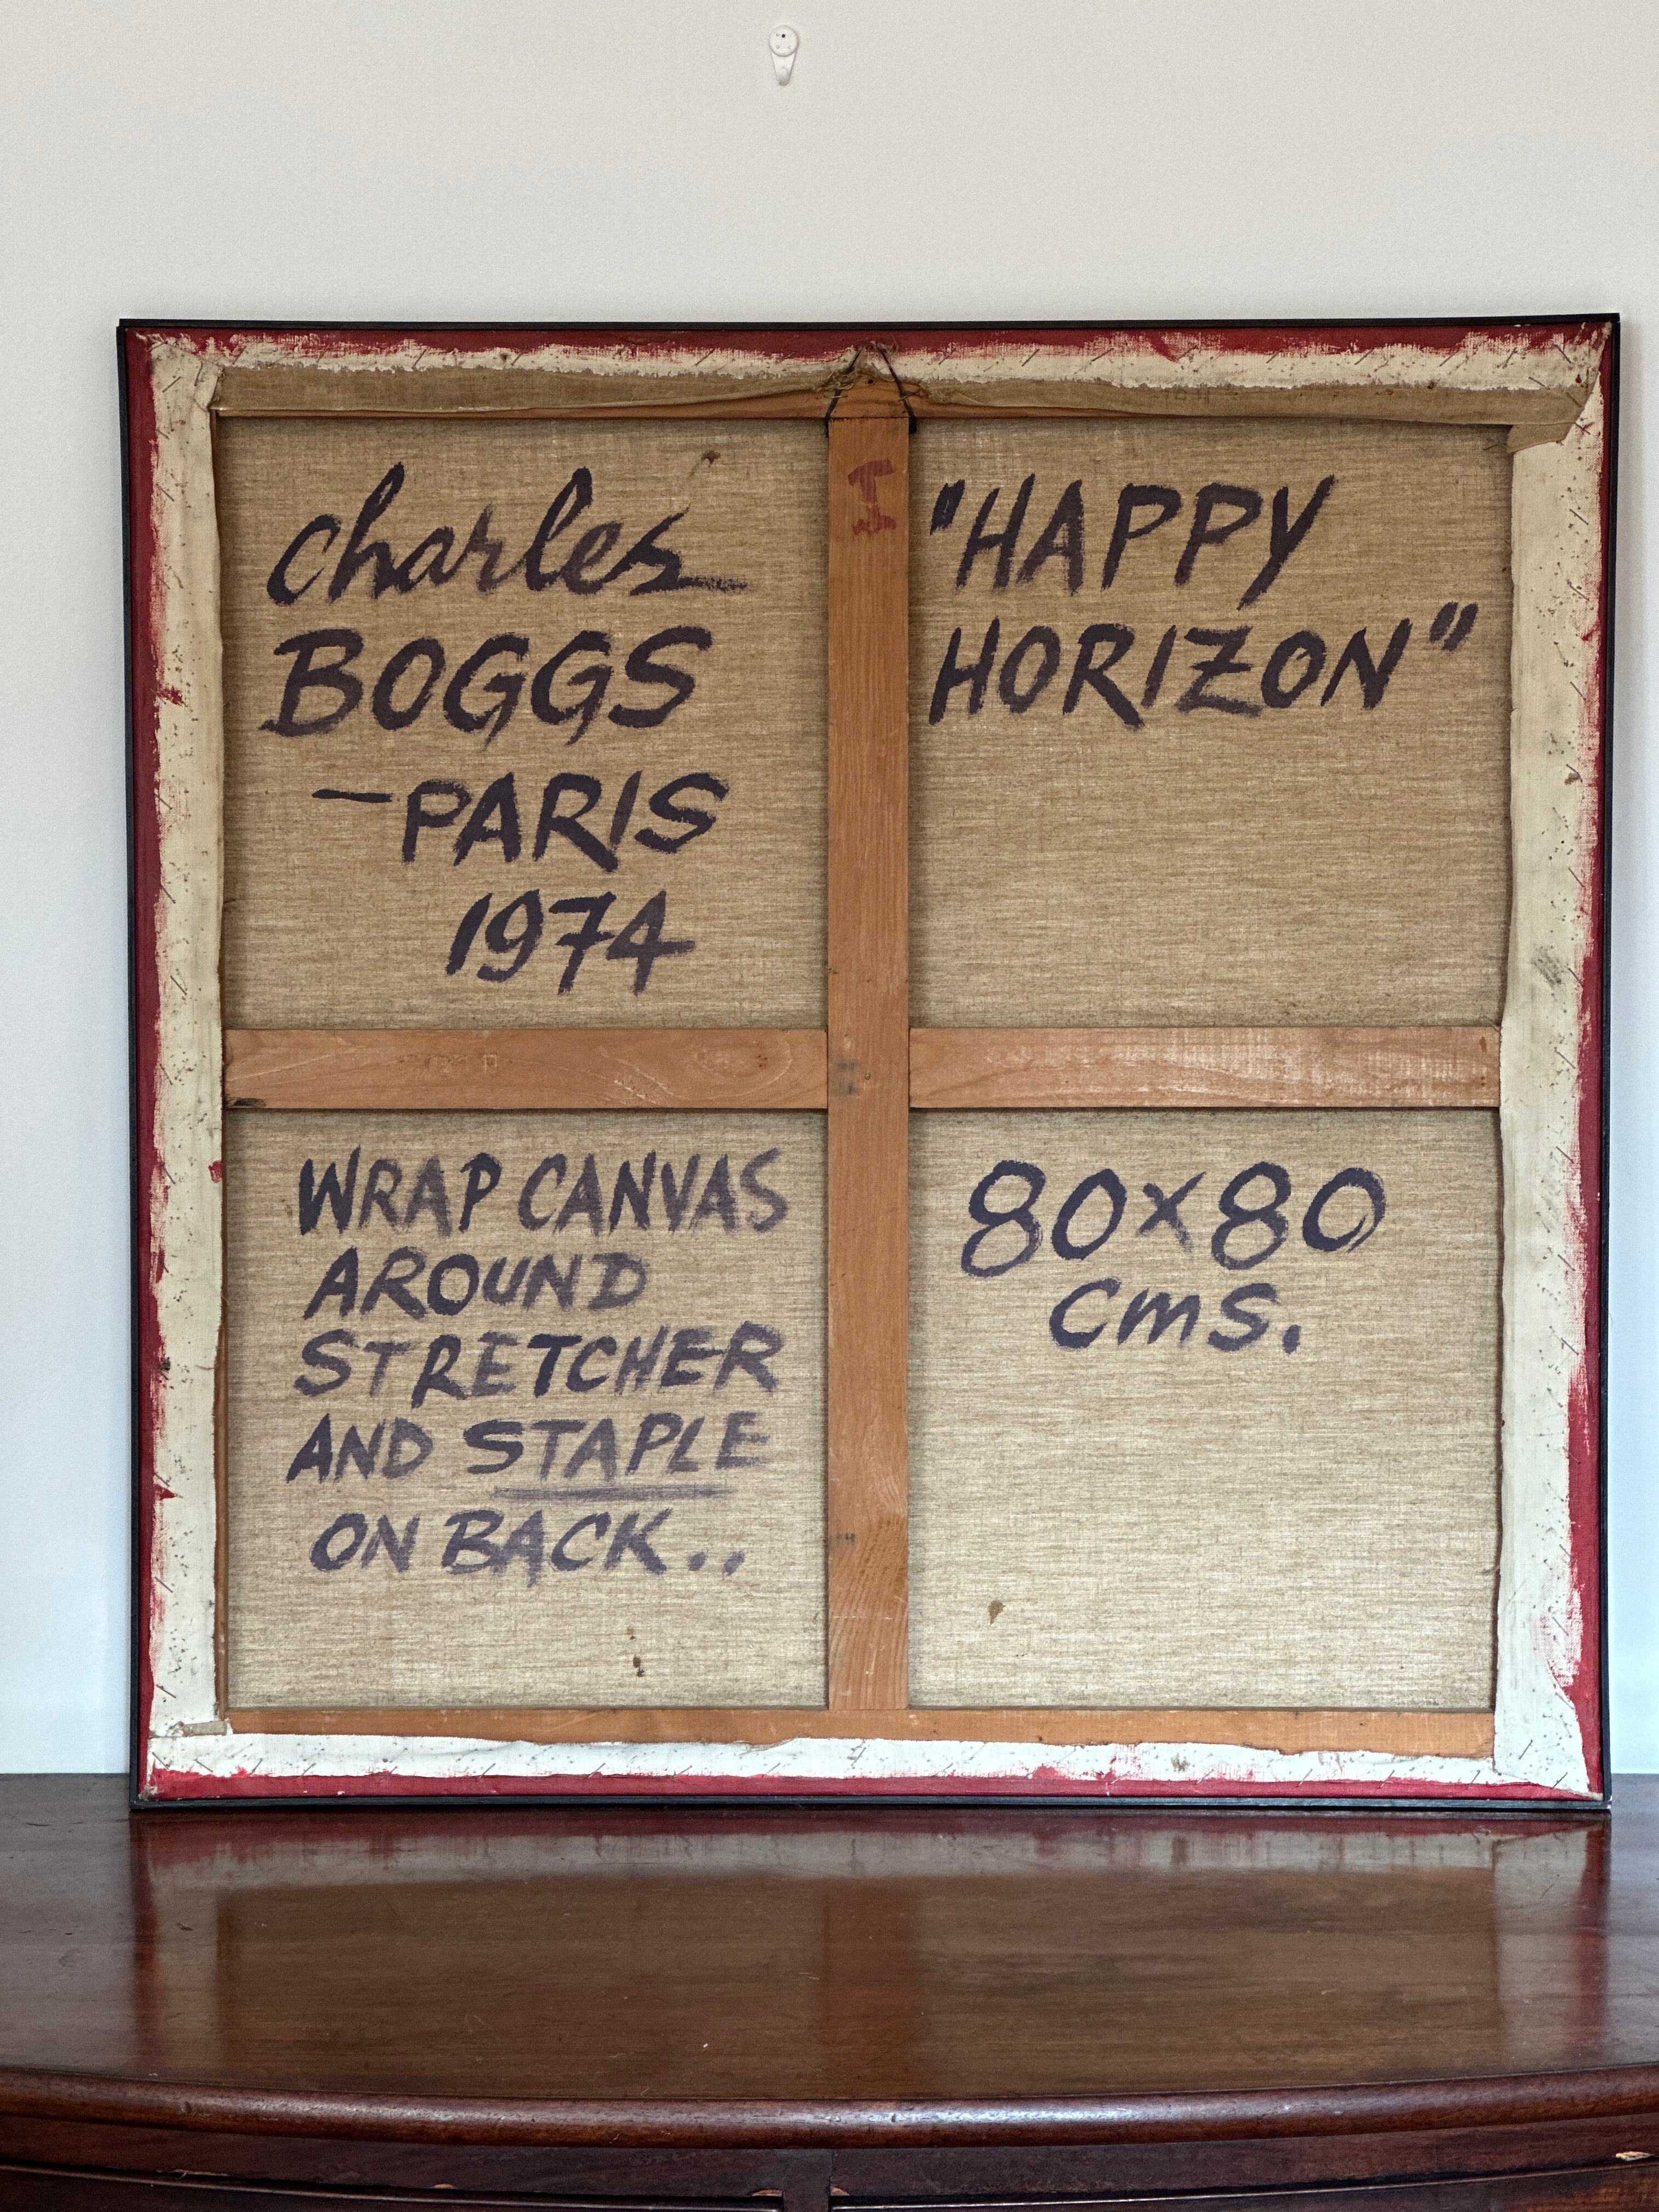 Charles
BOGGS
—PARIS
1974
"HAPPY
HORIZON"
WRAP CANVAS
AROUND
STRETCHER
AND STAPLE
ON BACK..
80x80
cms.